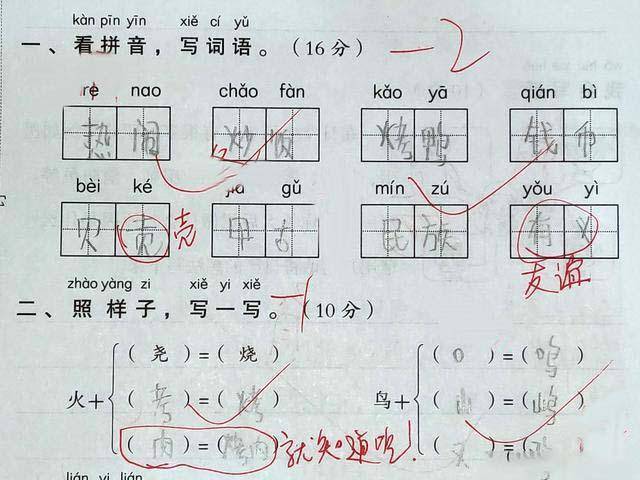 kàn pīn yīn xiě cí yǔ
一、看拼音，写词语。（16分） —2
rè nao chǎo fàn kǎo yā qián bì
热闹 炒饭 烤鸭 钱币
bèi ké jiǎ gǔ mín zú yǒu yì
贝壳 壳 甲古 民族 有义
友谊
zhào yàng zi xiě yi xiě
二、照样子，写一写。 —1 （10分）
（尧）=（烧） （口）=（鸣）
火+ （考）=（烤） 鸟+ （山）=（鸣）
（肉）=（烤肉） 就知道吃！ （又）=（鸡）
lián yi lián